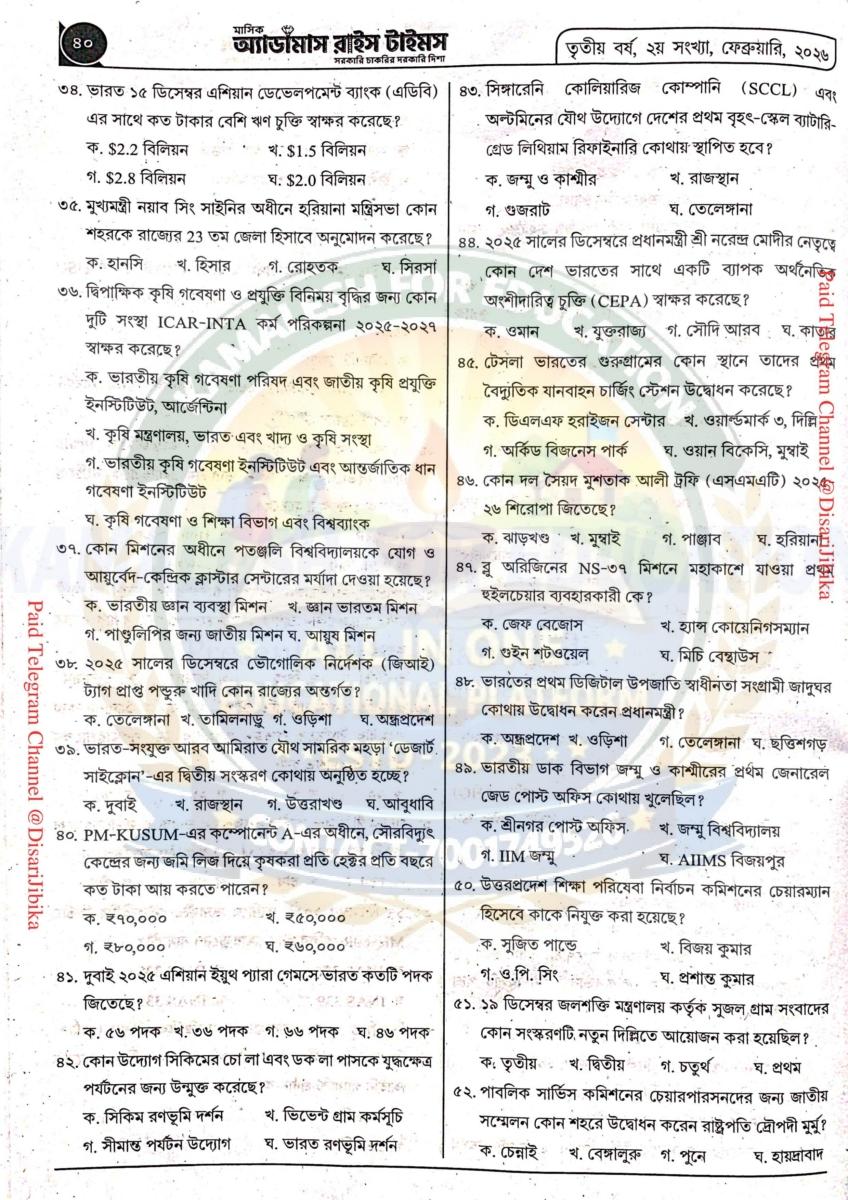 ৪০
মাসিক
অ্যাডামাস রাইস টাইমস
সরকারি চাকরির দরকারি দিশা
তৃতীয় বর্ষ, ২য় সংখ্যা, ফেব্রুয়ারি, ২০২৬
৩৪. ভারত ১৫ ডিসেম্বর এশিয়ান ডেভেলপমেন্ট ব্যাংক (এডিবি)
এর সাথে কত টাকার বেশি ঋণ চুক্তি স্বাক্ষর করেছে?
ক. $2.2 বিলিয়ন খ. $1.5 বিলিয়ন
গ. $2.8 বিলিয়ন ঘ. $2.0 বিলিয়ন
৩৫. মুখ্যমন্ত্রী নয়াব সিং সাইনির অধীনে হরিয়ানা মন্ত্রিসভা কোন
শহরকে রাজ্যের 23 তম জেলা হিসাবে অনুমোদন করেছে?
ক. হানসি খ. হিসার গ. রোহতক ঘ. সিরসা
৩৬. দ্বিপাক্ষিক কৃষি গবেষণা ও প্রযুক্তি বিনিময় বৃদ্ধির জন্য কোন
দুটি সংস্থা ICAR-INTA কর্ম পরিকল্পনা ২০২৫-২০২৭
স্বাক্ষর করেছে?
ক. ভারতীয় কৃষি গবেষণা পরিষদ এবং জাতীয় কৃষি প্রযুক্তি
ইনস্টিটিউট, আর্জেন্টিনা
খ. কৃষি মন্ত্রণালয়, ভারত এবং খাদ্য ও কৃষি সংস্থা
গ. ভারতীয় কৃষি গবেষণা ইনস্টিটিউট এবং আন্তর্জাতিক ধান
গবেষণা ইনস্টিটিউট
ঘ. কৃষি গবেষণা ও শিক্ষা বিভাগ এবং বিশ্বব্যাংক
৩৭. কোন মিশনের অধীনে পতঞ্জলি বিশ্ববিদ্যালয়কে যোগ ও
আয়ুর্বেদ-কেন্দ্রিক ক্লাস্টার সেন্টারের মর্যাদা দেওয়া হয়েছে?
ক. ভারতীয় জ্ঞান ব্যবস্থা মিশন খ. জ্ঞান ভারতম মিশন
গ. পাণ্ডুলিপির জন্য জাতীয় মিশন ঘ. আয়ুষ মিশন
৩৮. ২০২৫ সালের ডিসেম্বরে ভৌগোলিক নির্দেশক (জিআই)
ট্যাগ প্রাপ্ত পন্ডুরু খাদি কোন রাজ্যের অন্তর্গত?
ক. তেলেঙ্গানা খ. তামিলনাড়ু গ. ওড়িশা ঘ. অন্ধ্রপ্রদেশ
৩৯. ভারত-সংযুক্ত আরব আমিরাত যৌথ সামরিক মহড়া ‘ডেজার্ট
সাইক্লোন’-এর দ্বিতীয় সংস্করণ কোথায় অনুষ্ঠিত হচ্ছে?
ক. দুবাই খ. রাজস্থান গ. উত্তরাখণ্ড ঘ. আবুধাবি
৪০. PM-KUSUM-এর কম্পোনেন্ট A-এর অধীনে, সৌরবিদ্যুৎ
কেন্দ্রের জন্য জমি লিজ দিয়ে কৃষকরা প্রতি হেক্টর প্রতি বছরে
কত টাকা আয় করতে পারেন?
ক. ₹৭০,০০০ খ. ₹৫০,০০০
গ. ₹৮০,০০০ ঘ. ₹৬০,০০০
৪১. দুবাই ২০২৫ এশিয়ান ইয়ুথ প্যারা গেমসে ভারত কতটি পদক
জিতেছে?
ক. ৫৬ পদক খ. ৩৬ পদক গ. ৬৬ পদক ঘ. ৪৬ পদক
৪২. কোন উদ্যোগ সিকিমের চো লা এবং ডক লা পাসকে যুদ্ধক্ষেত্র
পর্যটনের জন্য উন্মুক্ত করেছে?
ক. সিকিম রণভূমি দর্শন খ. ভিভেন্ট গ্রাম কর্মসূচি
গ. সীমান্ত পর্যটন উদ্যোগ ঘ. ভারত রণভূমি দর্শন
৪৩. সিঙ্গারেনি কোলিয়ারিজ কোম্পানি (SCCL) এবং
অল্টমিনের যৌথ উদ্যোগে দেশের প্রথম বৃহৎ-স্কেল ব্যাটারি-
গ্রেড লিথিয়াম রিফাইনারি কোথায় স্থাপিত হবে?
ক. জম্মু ও কাশ্মীর খ. রাজস্থান
গ. গুজরাট ঘ. তেলেঙ্গানা
৪৪. ২০২৫ সালের ডিসেম্বরে প্রধানমন্ত্রী শ্রী নরেন্দ্র মোদীর নেতৃত্বে
কোন দেশ ভারতের সাথে একটি ব্যাপক অর্থনৈতিক
অংশীদারিত্ব চুক্তি (CEPA) স্বাক্ষর করেছে?
ক. ওমান খ. যুক্তরাজ্য গ. সৌদি আরব ঘ. কাতার
৪৫. টেসলা ভারতের গুরুগ্রামের কোন স্থানে তাদের প্রথম
বৈদ্যুতিক যানবাহন চার্জিং স্টেশন উদ্বোধন করেছে?
ক. ডিএলএফ হরাইজন সেন্টার খ. ওয়ার্ল্ডমার্ক ৩, দিল্লি
গ. অর্কিড বিজনেস পার্ক ঘ. ওয়ান বিকেসি, মুম্বাই
৪৬. কোন দল সৈয়দ মুশতাক আলী ট্রফি (এসএমএটি) ২০২৫-
২৬ শিরোপা জিতেছে?
ক. ঝাড়খণ্ড খ. মুম্বাই গ. পাঞ্জাব ঘ. হরিয়ানা
৪৭. ব্লু অরিজিনের NS-৩৭ মিশনে মহাকাশে যাওয়া প্রথম
হুইলচেয়ার ব্যবহারকারী কে?
ক. জেফ বেজোস খ. হ্যান্স কোয়েনিগসম্যান
গ. গুইন শটওয়েল ঘ. মিচি বেন্থাউস
৪৮. ভারতের প্রথম ডিজিটাল উপজাতি স্বাধীনতা সংগ্রামী জাদুঘর
কোথায় উদ্বোধন করেন প্রধানমন্ত্রী?
ক. অন্ধ্রপ্রদেশ খ. ওড়িশা গ. তেলেঙ্গানা ঘ. ছত্তিশগড়
৪৯. ভারতীয় ডাক বিভাগ জম্মু ও কাশ্মীরের প্রথম জেনারেল
জেড পোস্ট অফিস কোথায় খুলেছিল?
ক. শ্রীনগর পোস্ট অফিস খ. জম্মু বিশ্ববিদ্যালয়
গ. IIM জম্মু ঘ. AIIMS বিজয়পুর
৫০. উত্তরপ্রদেশ শিক্ষা পরিষেবা নির্বাচন কমিশনের চেয়ারম্যান
হিসেবে কাকে নিযুক্ত করা হয়েছে?
ক. সুজিত পান্ডে খ. বিজয় কুমার
গ. ও.পি. সিং ঘ. প্রশান্ত কুমার
৫১. ১৯ ডিসেম্বর জলশক্তি মন্ত্রণালয় কর্তৃক সুজল গ্রাম সংবাদের
কোন সংস্করণটি নতুন দিল্লিতে আয়োজন করা হয়েছিল?
ক. তৃতীয় খ. দ্বিতীয় গ. চতুর্থ ঘ. প্রথম
৫২. পাবলিক সার্ভিস কমিশনের চেয়ারপারসনদের জন্য জাতীয়
সম্মেলন কোন শহরে উদ্বোধন করেন রাষ্ট্রপতি দ্রৌপদী মুর্মু?
ক. চেন্নাই খ. বেঙ্গালুরু গ. পুনে ঘ. হায়দ্রাবাদ
Paid Telegram Channel @DisariJibika
Paid Telegram Channel @DisariJibika
KAMALESH FOR EDUCATION
ALL IN ONE
EDUCATIONAL PLATFORM
ESTD-202
CONTACT-7001749526